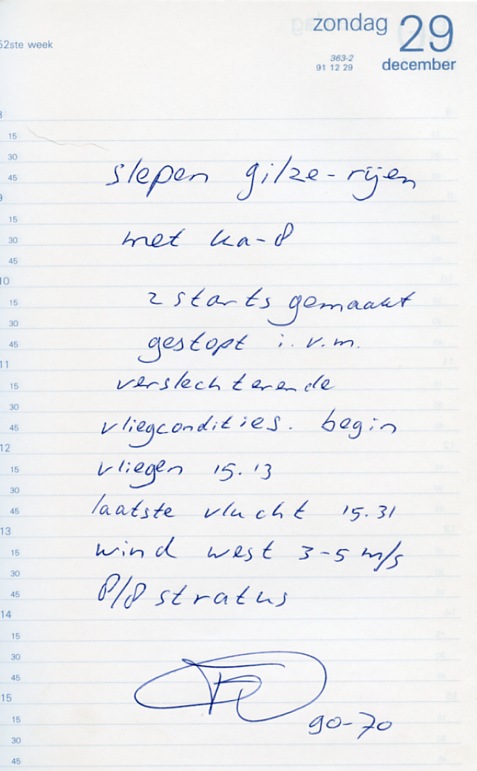 zondag 29
52ste week
363-2
91 12 29
december
8
15
30
45
slepen gilze-rijen
9
15
30
met ka-8
45
10
15
2 starts gemaakt
30
45
gestopt i.v.m.
11
15
verslechterende
30
45
vliegcondities. begin
12
15
vliegen 15.13
30
45
laatste vlucht 15.31
13
15
wind west 3-5 m/s
30
45
8/8 stratus
14
15
30
45
15
15
90-70
30
45